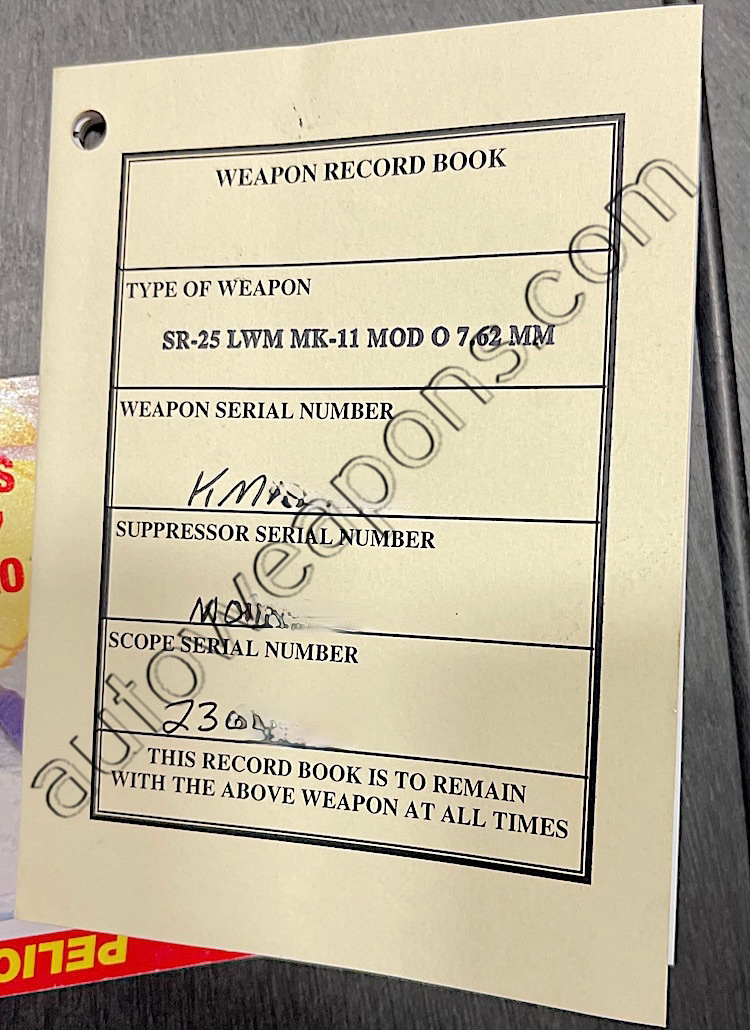 WEAPON RECORD BOOK
TYPE OF WEAPON
SR-25 LWM MK-11 MOD O 7.62 MM
WEAPON SERIAL NUMBER
SUPPRESSOR SERIAL NUMBER
SCOPE SERIAL NUMBER
THIS RECORD BOOK IS TO REMAIN
WITH THE ABOVE WEAPON AT ALL TIMES
autoweapons.com